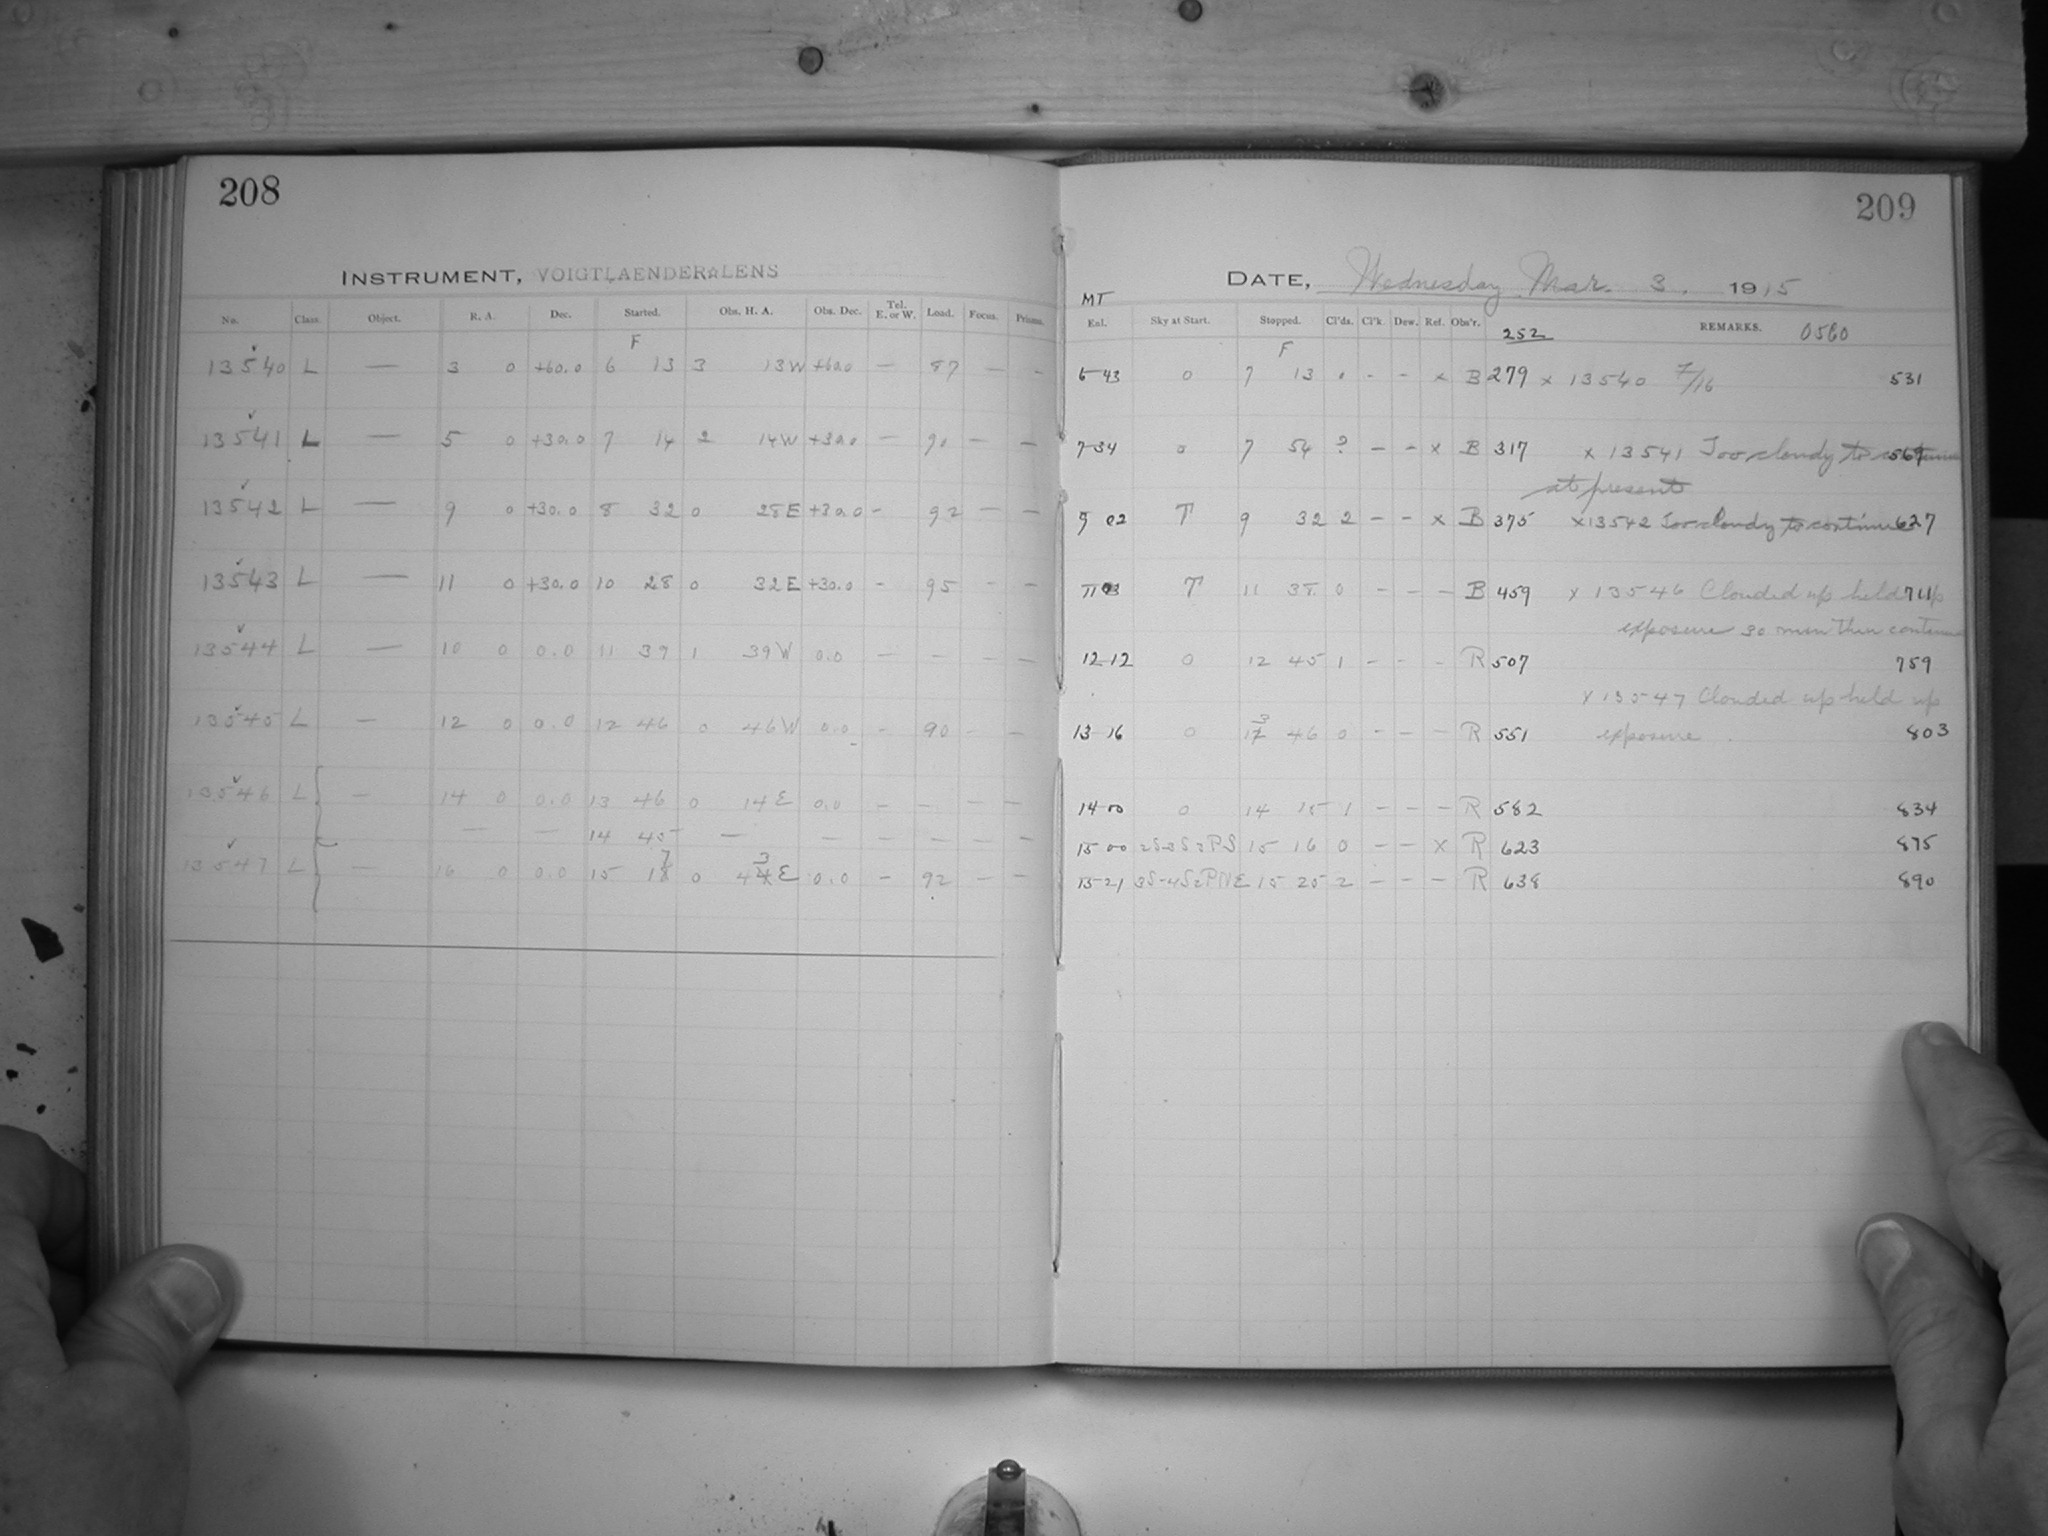 208
INSTRUMENT, VOIGTLAENDER☆LENS
No. Class. Object. R. A. Dec. Started. Obs. H. A. Obs. Dec. Tel. E. or W. Load. Focus. Prisms.
F
13540 L — 3 0 +60.0 6 13 3 13W +60.0 — 87 — —
13541 L — 5 0 +30.0 7 14 2 14W +30.0 — 90 — —
13542 L — 9 0 +30.0 8 32 0 28E +30.0 - 92 — —
13543 L — 11 0 +30.0 10 28 0 32E +30.0 - 95 - —
13544 L — 10 0 0.0 11 39 1 39W 0.0 — — — —
13545 L — 12 0 0.0 12 46 0 46W 0.0 - 90 - —
13546 L — 14 0 0.0 13 46 0 14E 0.0 — — — —
— — 14 45 — — — — — —
13547 L — 16 0 0.0 15 7 0 43E 0.0 - 92 — —
209
DATE, Wednesday Mar. 3. 1915
MT
Exl. Sky at Start. Stopped. Cl'ds. Cl'k. Dew. Ref. Obs'r. 252 REMARKS. 0560
F
6 43 0 7 13 0 - - x B 279 x 13540 7/16 531
7 34 0 7 54 ? — - x B 317 x 13541 Too cloudy to continue 569
at present
9 02 T 9 32 2 — - x B 375 x13542 Too cloudy to continue 627
11 03 T 11 38 0 - - — B 459 x 13546 Clouded up held up 711
exposure 30 min then continued
12 12 0 12 45 1 - - - R 507 759
x 13547 Clouded up held up
13 16 0 13 46 0 - - — R 551 exposure. 803
14 00 0 14 15 1 - - — R 582 834
15 00 2S-3S2PS 15 16 0 — - x R 623 875
15 21 3S-4S2PNE 15 25 2 - - — R 638 890